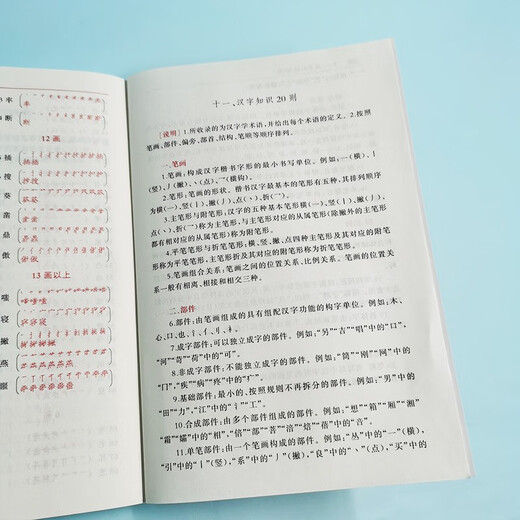 3 率
4 断
12 画
5 插
6 搜
7 葵
8 凿
9 鼎
0 傲
13 画以上
1 嗤
2 寝
3 撇
4 燕
十一、汉字知识 20 则
[说明] 1.所收录的为汉字学术语,并给出每个术语的定义。2.按照
笔画、部件、偏旁、部首、结构、笔顺等顺序排列。
一、笔画
1.笔画:构成汉字楷书字形的最小书写单位。例如:一(横)、丨
(竖)、丿(撇)、丶(点)、乛(横钩)。
2.笔形:笔画的形状。楷书汉字最基本的笔形有五种,其排列顺序
为横(一)、竖(丨)、撇(丿)、点(丶)、折(乛)。
3.主笔形与附笔形:汉字的五种基本笔形横(一)、竖(丨)、撇
(丿)、点(丶)、折(乛)称为主笔形,与主笔形对应的从属笔形(除撇外的主笔形
都有相对应的从属笔形)称为附笔形。
4.平笔笔形与折笔笔形:横、竖、撇、点四种主笔形及其对应的附笔
形称为平笔笔形,主笔形折及其对应的附笔形称为折笔笔形。
5.笔画组合关系:笔画之间的位置关系、比例关系。笔画的位置关
系一般有相离、相接和相交三种。
二、部件
6.部件:由笔画组成的具有组配汉字功能的构字单位。例如:木、
心、口、也、氵、亻、刂、礻。
7.成字部件:可以独立成字的部件。例如:“另”“吉”“唱”中的“口”,
“河”“苛”“荷”中的“可”。
8.非成字部件:不能独立成字的部件。例如:“筒”“刚”“网”中的
“冂”,“疾”“病”“疼”中的“疒”。
9.基础部件:最小的、按照规则不再拆分的部件。例如:“男”中的
“田”“力”,“江”中的“氵”“工”。
10.合成部件:由多个部件组成的部件。例如:“想”“箱”“厢”“湘”
“霜”“孀”中的“相”,“倍”“部”“菩”“涪”“焙”“蓓”中的“音”。
11.单笔部件:由一个笔画构成的部件。例如:“丛”中的“一”(横),
“引”中的“丨”(竖),“系”中的“丿”(撇),“良”中的“丶”(点),“买”中的